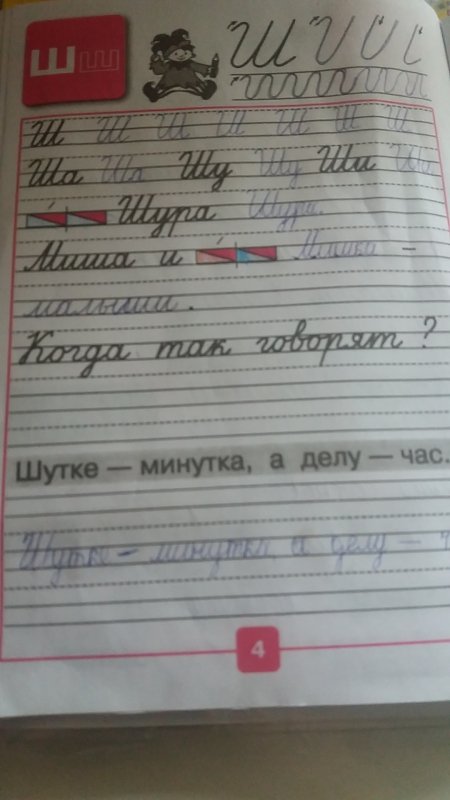 Шш Ш
Ш Ш Ш Ш Ш Ш Ш
Ша Ша Шу Шу Ши Ши
Шура Шура.
Миша и Мишки –
малыши.
Когда так говорят?
Шутке — минутка, а делу — час.
Шутке – минутка, а делу – ч
4